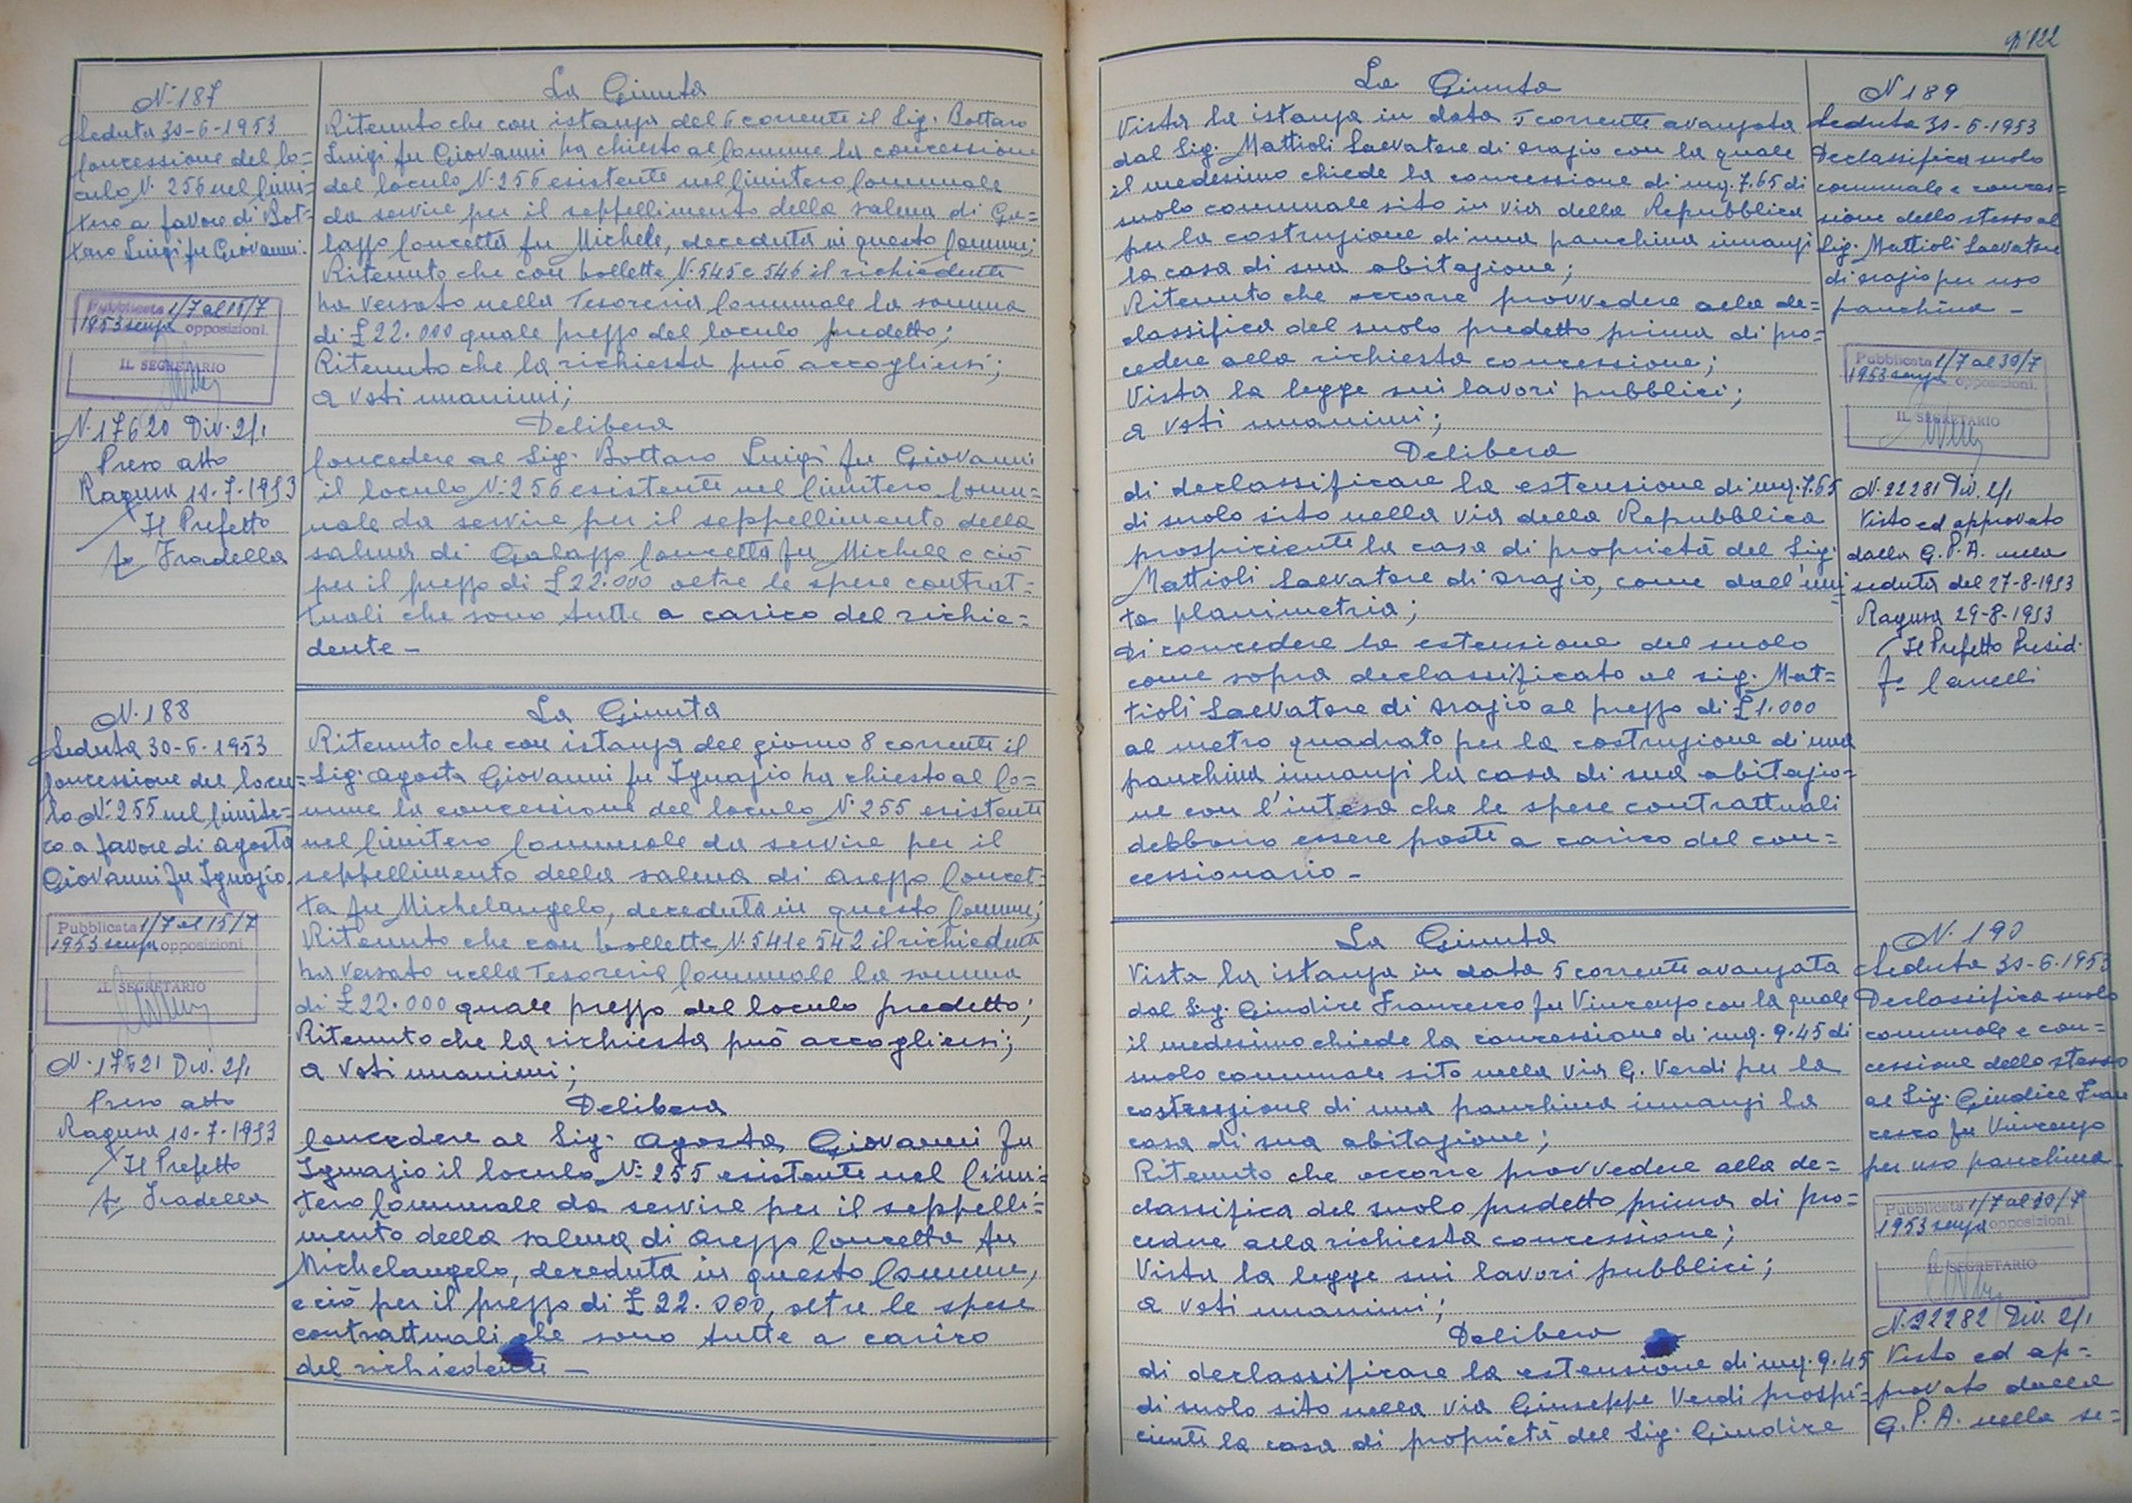 N. 187
Seduta 30-6-1953
Concessione del lo=
culo N. 256 nel Cimi=
tero a favore di Bot=
taro Luigi fu Giovanni.
Pubblicata 1/7 al 15/7
1953 senza opposizioni.
IL SEGRETARIO
N. 17620 Div. 2/1
Preso atto
Ragusa 10-7-1953
Il Prefetto
fto Fradella
La Giunta
Ritenuto che con istanza del 6 corrente il Sig. Bottaro
Luigi fu Giovanni ha chiesto al Comune la concessione
del loculo N. 256 esistente nel Cimitero Comunale
da servire per il seppellimento della salma di Ga=
lazzo Concetta fu Michele, deceduta in questo Comune;
Ritenuto che con bollette N. 545 e 546 il richiedente
ha versato nella Tesoreria Comunale la somma
di £ 22.000 quale prezzo del loculo predetto;
Ritenuto che la richiesta può accogliersi;
a voti unanimi;
Delibera
Concedere al Sig. Bottaro Luigi fu Giovanni
il loculo N. 256 esistente nel Cimitero Comu=
nale da servire per il seppellimento della
salma di Galazzo Concetta fu Michele e ciò
per il prezzo di £ 22.000 oltre le spese contrat=
tuali che sono tutte a carico del richie=
dente -
N. 188
Seduta 30-6-1953
Concessione del locu=
lo N. 255 nel Cimite=
ro a favore di Agosta
Giovanni fu Ignazio.
Pubblicata 1/7 al 15/7
1953 senza opposizioni
IL SEGRETARIO
N. 17621 Div. 2/1
Preso atto
Ragusa 10-7-1953
Il Prefetto
fto Fradella
La Giunta
Ritenuto che con istanza del giorno 8 corrente il
Sig. Agosta Giovanni fu Ignazio ha chiesto al Co=
mune la concessione del loculo N. 255 esistente
nel Cimitero Comunale da servire per il
seppellimento della salma di Arezzo Concet=
ta fu Michelangelo, deceduta in questo Comune;
Ritenuto che con bollette N. 541 e 542 il richiedente
ha versato nella Tesoreria Comunale la somma
di £ 22.000 quale prezzo del loculo predetto;
Ritenuto che la richiesta può accogliersi;
a voti unanimi;
Delibera
Concedere al Sig. Agosta Giovanni fu
Ignazio il loculo N. 255 esistente nel Cimi=
tero Comunale da servire per il seppelli=
mento della salma di Arezzo Concetta fu
Michelangelo, deceduta in questo Comune,
e ciò per il prezzo di £ 22.000, oltre le spese
contrattuali che sono tutte a carico
del richiedente -
122
La Giunta
Vista la istanza in data 5 corrente avanzata
dal Sig. Mattioli Salvatore di Orazio con la quale
il medesimo chiede la concessione di mq. 7.65 di
suolo comunale sito in via della Repubblica
per la costruzione di una panchina innanzi
la casa di sua abitazione;
Ritenuto che occorre provvedere alla de=
classifica del suolo predetto prima di pro=
cedere alla richiesta concessione;
Vista la legge sui lavori pubblici;
a voti unanimi;
Delibera
di declassificare la estensione di mq. 7.65
di suolo sito nella via della Repubblica
prospiciente la casa di proprietà del Sig.
Mattioli Salvatore di Orazio, come dall'uni=
ta planimetria;
Di concedere la estensione del suolo
come sopra declassificato al sig. Mat=
tioli Salvatore di Orazio al prezzo di £ 1.000
al metro quadrato per la costruzione di una
panchina innanzi la casa di sua abitazio=
ne con l'intesa che le spese contrattuali
debbono essere poste a carico del con=
cessionario -
N 189
Seduta 30-6-1953
Declassifica suolo
comunale e conces=
sione dello stesso al
Sig. Mattioli Salvatore
di Orazio per uso
panchina -
Pubblicata 1/7 al 30/7
1953 senza opposizioni.
IL SEGRETARIO
N. 22281 Div. 2/1
Visto ed approvato
dalla G.P.A. nella
seduta del 27-8-1953
Ragusa 29-8-1953
Il Prefetto Presid.
La Giunta
Vista la istanza in data 5 corrente avanzata
dal Sig. Giudice Francesco fu Vincenzo con la quale
il medesimo chiede la concessione di mq. 9.45 di
suolo comunale sito nella via G. Verdi per la
costruzione di una panchina innanzi la
casa di sua abitazione;
Ritenuto che occorre provvedere alla de=
classifica del suolo predetto prima di pro=
cedere alla richiesta concessione;
Vista la legge sui lavori pubblici;
a voti unanimi;
Delibera
di declassificare la estensione di mq. 9.45
di suolo sito nella via Giuseppe Verdi prospi=
ciente la casa di proprietà del Sig. Giudice
N. 190
Seduta 30-6-1953
Declassifica suolo
comunale e con=
cessione dello stesso
al Sig. Giudice Fran
cesco fu Vincenzo
per uso panchina.
Pubblicata 1/7 al 30/7
1953 senza opposizioni.
IL SEGRETARIO
N. 22282 Div. 2/1
Visto ed ap=
provato dalla
G.P.A. nella se=